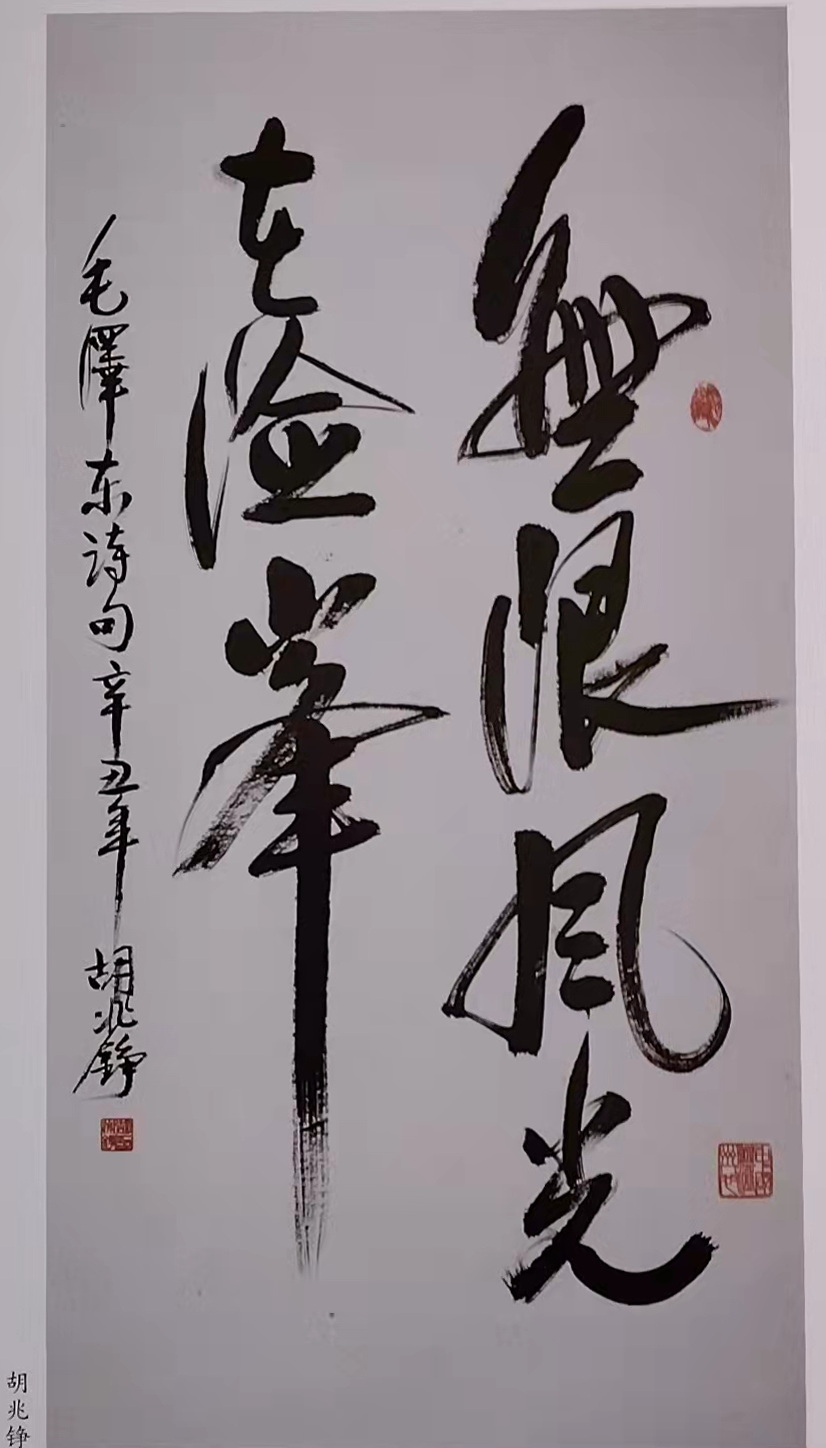 無限風光
在险峯
毛澤东诗句辛丑年 胡兆錚
胡兆铮